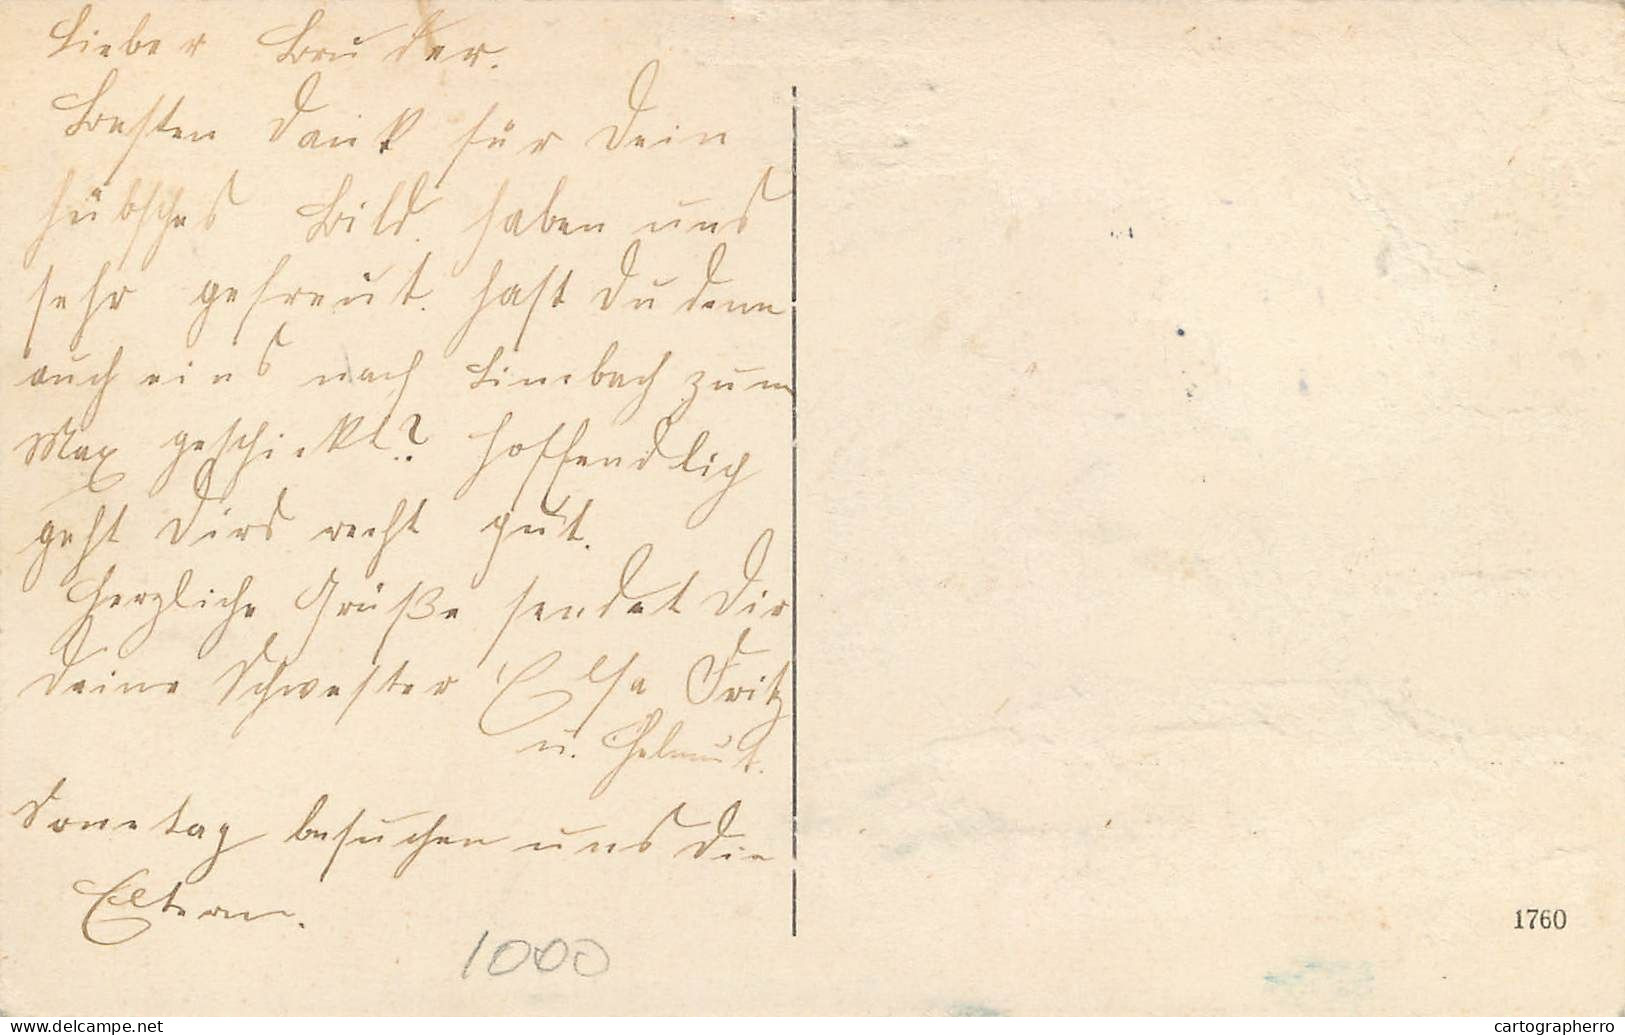 Lieber Bruder.
Besten Dank für Dein
hübsches Bild. haben uns
sehr gefreut. hast Du denn
auch eins nach Limbach zum
Max geschickt? hoffendlich
geht Dirs recht gut.
Herzliche Grüße sendet Dir
Deine Schwester Elsa Fritz
u. Helmut.
Sonntag besuchen uns die
Eltern.
1000
1760
www.delcampe.net
cartographerro